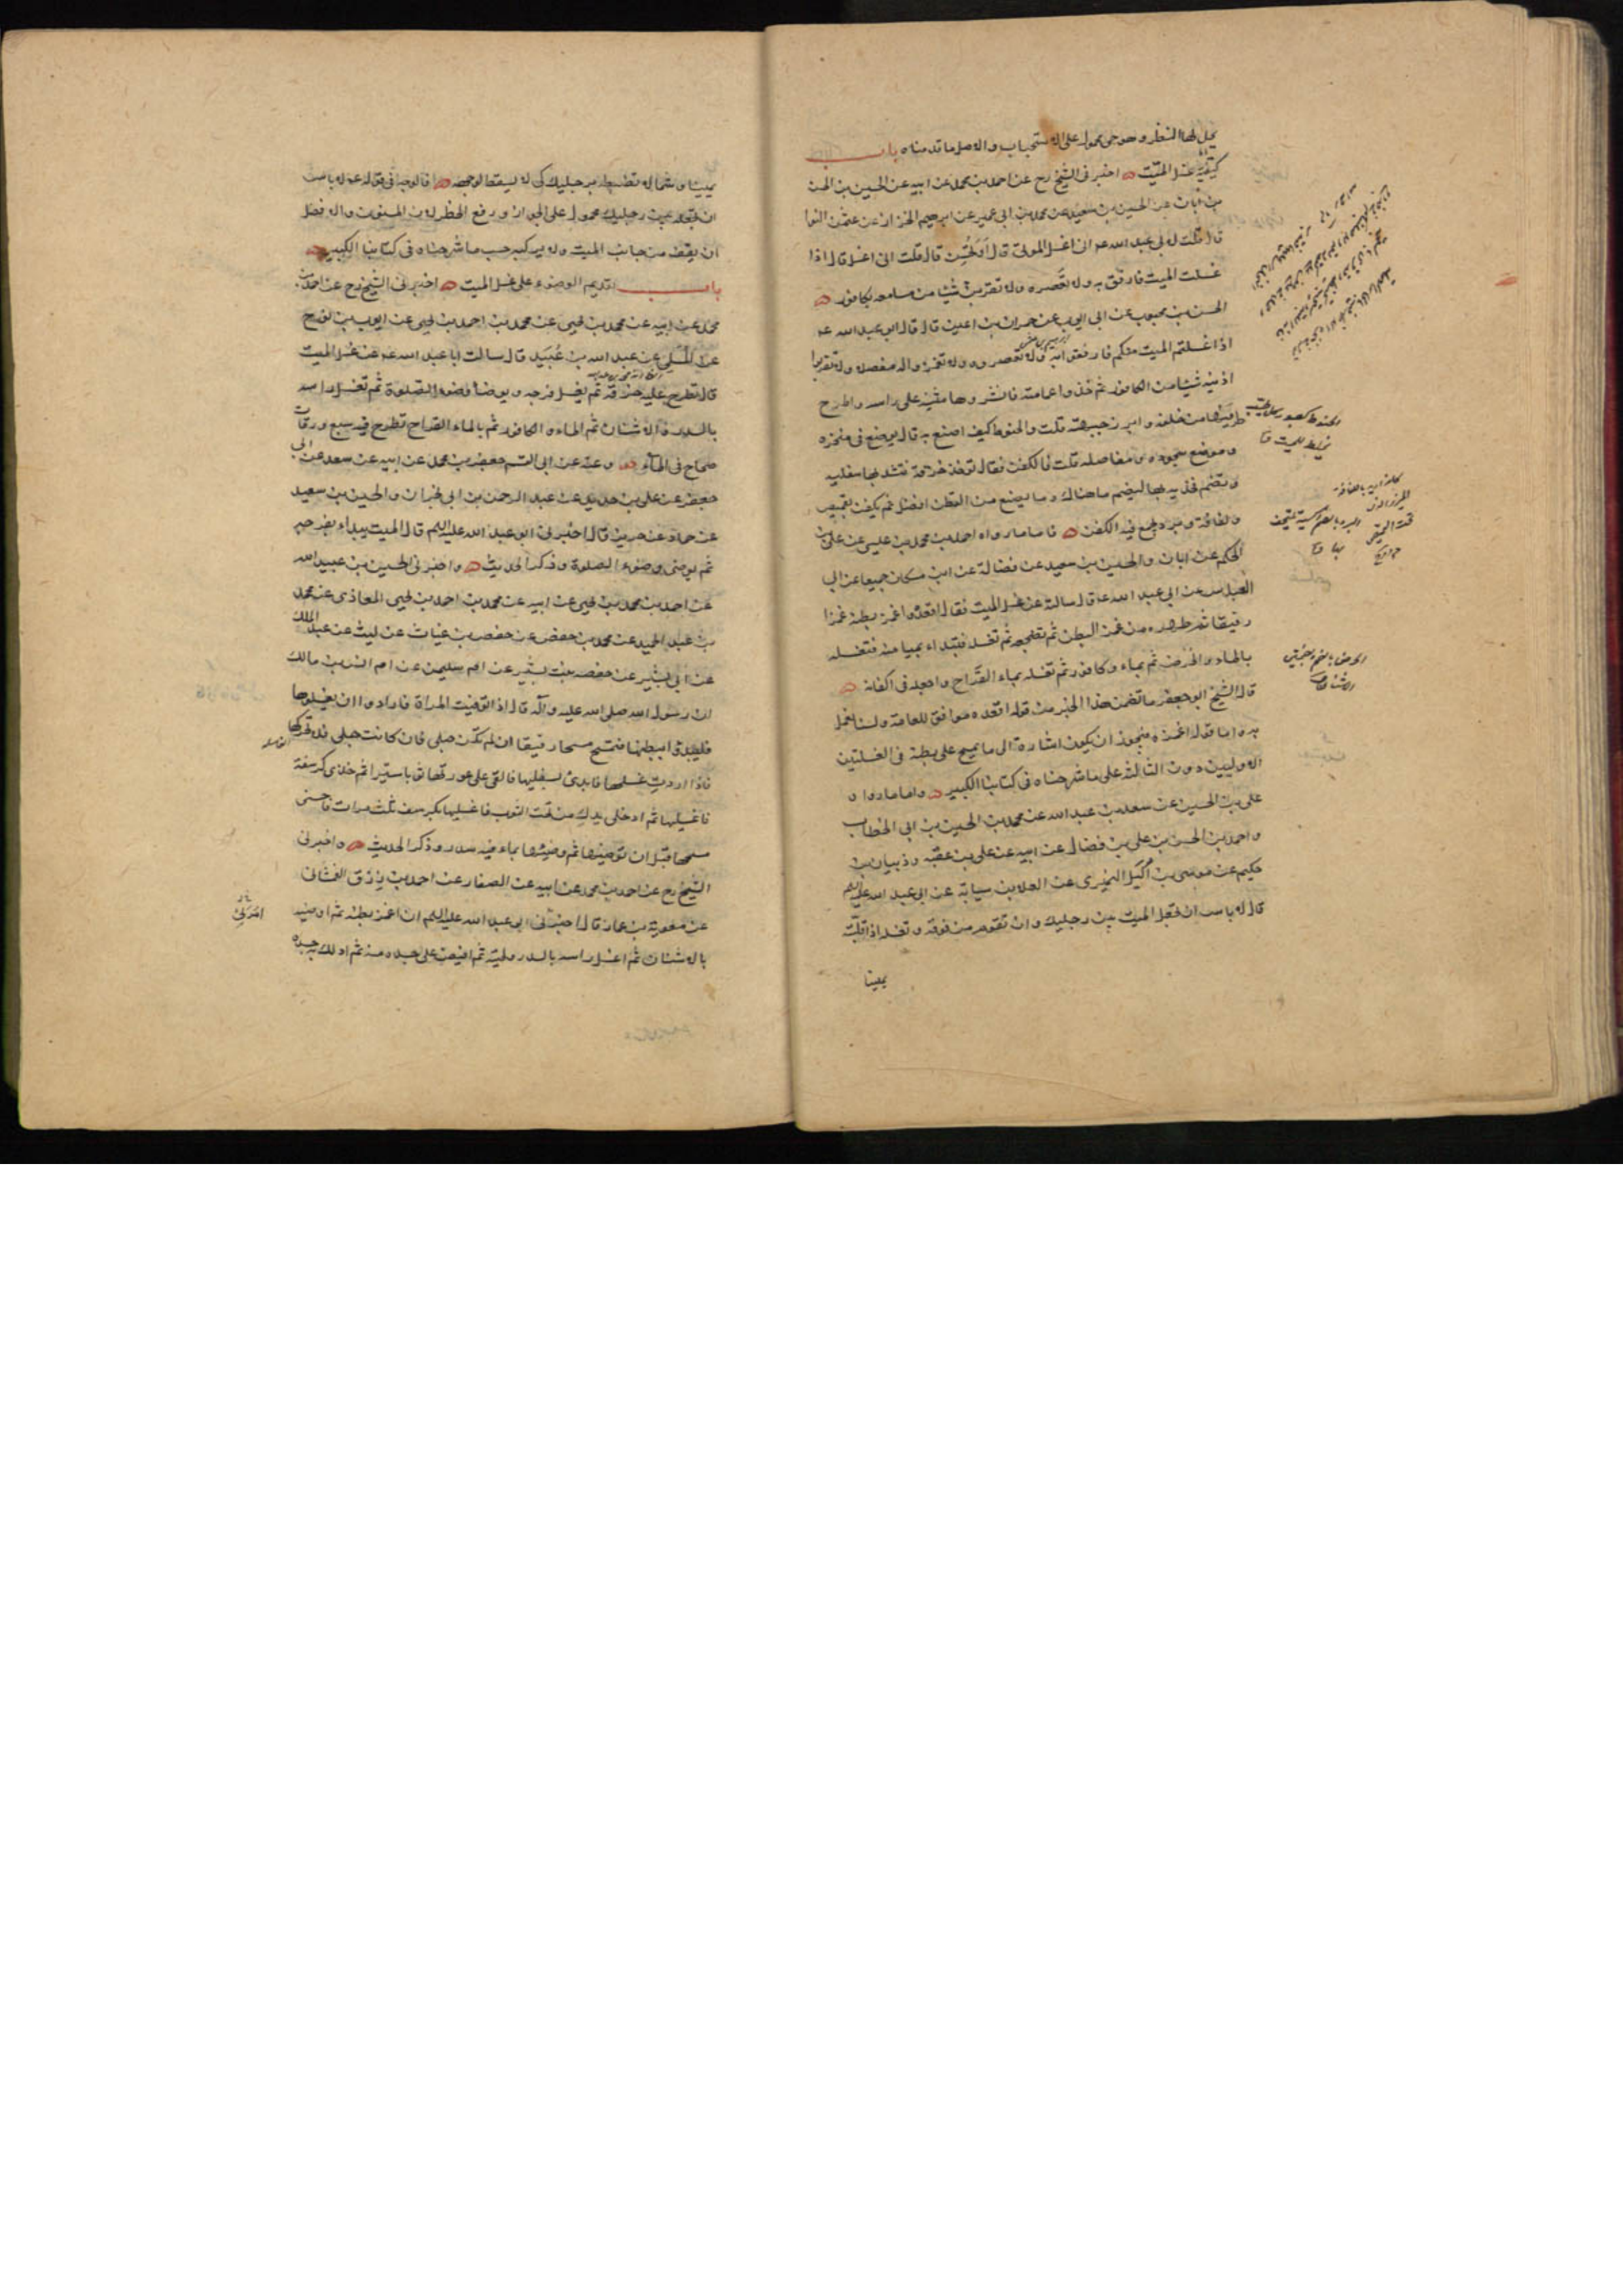 يميل لها الشطر وهو جي محمول على الاستحباب والاصل ما قدمناه باب
كيفية غسل الميت اخبرني الشيخ رح عن احمد بن محمد عن ابيه عن الحسين بن الحسن
بن ابان عن الحسين بن سعيد عن محمد بن ابي عمير عن ابرهيم الخزاز عن عثمن النوا
قال قلت لابي عبد الله عم اني اغسل الموتى قال او تحسن قال قلت اني اغسل قال اذا
غسلت الميت فارفق به ولا تعصره ولا تقربن شيئا من مسامعه بكافور
الحسن بن محبوب عن ابي ايوب عن حمران بن اعين قال قال ابو عبد الله عم
اذا غسلتم الميت منكم فارفقوا به ولا تعصروه ولا تغمزوا له مفصلا ولا تقربوا
اذنيه شيئا من الكافور ثم خذوا عمامته فانشروها مثنية على راسه واطرح
طرفيها من خلفه وابرز جبهته قلت والحنوط كيف اصنع به قال يوضع في منخره
وموضع سجوده ومفاصله قلت فالكفن فقال تؤخذ خرقة فتشد بها سفليه
وتضم فخذيه بها ليضم ما هناك وما يصنع من القطن افضل ثم يكفن بقميص
ولفافة وبرد يجمع فيه الكفن فاما ما رواه احمد بن محمد بن عيسى عن علي بن
الحكم عن ابان والحسين بن سعيد عن فضالة عن ابن مسكان جميعا عن ابي
العباس عن ابي عبد الله ع قال سالته عن غسل الميت فقال اقعده واغمز بطنه غمزا
رفيقا ثم طهره من غمز البطن ثم تضجعه ثم تغسله فتبداء بميامنه فتغسله
بالماء والحرض ثم بماء وكافور ثم تغسله بماء القراح واجعله في اكفانه
قال الشيخ ابو جعفر ما تضمن هذا الخبر من قوله اقعده موافق للعامة ولسنا نعمل
به واما قوله اغمزه فيجوز ان يكون اشارة الى ما يمسح على بطنه في الغسلتين
الاوليين دون الثالثة على ما شرحناه في كتابنا الكبير واما ما رواه
علي بن الحسين عن سعد بن عبد الله عن محمد بن الحسين بن ابي الخطاب
واحمد بن الحسن بن علي بن فضال عن ابيه عن علي بن عقبة وذبيان بن
حكيم عن موسى بن اكيل النميري عن العلا بن سيابة عن ابي عبد الله عليه السلم
قال لا باس ان تجعل الميت بين رجليك وان تقوم من فوقه وتغسله اذا قلبته
يمينا
يمينا وشمالا تضبطه برجليك كي لا يسقط لوجهه فالوجه في قوله عم لا باس
ان تجعله بين رجليك محمول على الجواز ورفع الحظر لان المسنون والافضل
ان يقف من جانب الميت ولا يركبه حسب ما شرحناه في كتابنا الكبير
باب تقديم الوضوء على غسل الميت اخبرني الشيخ رح عن احمد بن
محمد عن ابيه عن محمد بن يحيى عن محمد بن احمد بن يحيى عن ايوب بن نوح
عن المسلي عن عبد الله بن عبيد قال سالت ابا عبد الله عم عن غسل الميت
قال تطرح عليه خرقة ثم يغسل فرجه ويوضأ وضوء الصلوة ثم تغسل راسه
بالسدر والاشنان ثم الماء والكافور ثم بالماء القراح تطرح فيه سبع ورقات
صحاح في الماء وعنه عن ابي القسم جعفر بن محمد عن ابيه عن سعد عن ابي
جعفر عن علي بن حديد عن عبد الرحمن بن ابي نجران والحسين بن سعيد
عن حماد عن حريز قال اخبرني ابو عبد الله عليه السلم قال الميت يبداء بفرجه
ثم يوضى وضوء الصلوة وذكر الحديث واخبرني الحسين بن عبيد الله
عن احمد بن محمد بن يحيى عن ابيه عن محمد بن احمد بن يحيى المعاذي عن محمد
بن عبد الحميد عن محمد بن حفص عن حفص بن غياث عن ليث عن عبد الملك
عن ابي بشير عن حفصه بنت سيرين عن ام سليمن عن ام انس بن مالك
ان رسول الله صلى الله عليه وآله قال اذا توفيت المراة فارادوا ان يغسلوها
فليبدؤا ببطنها فتمسح مسحا رفيقا ان لم تكن حبلى فان كانت حبلى فلا تحركها
فاذا اردت غسلها فابدئ بسفليها فالقي على عورتها ثوبا ستيرا ثم خذي كرسفة
فاغسليها ثم ادخلي يدك من تحت الثوب فاغسليها بكرسف ثلث مرات فاحسني
مسحها قبل ان توضئيها ثم وضيئها بماء فيه سدر وذكر الحديث واخبرني
الشيخ رح عن احمد بن محمد عن ابيه عن الصفار عن احمد بن رزق الغشاني
عن معوية بن عمار قال امرني ابو عبد الله عليه السلم ان اغمز بطنه ثم اوضيه
بالاشنان ثم اغسل راسه بالسدر ولحيته ثم افيض على جسده منه ثم ادلك به جسده